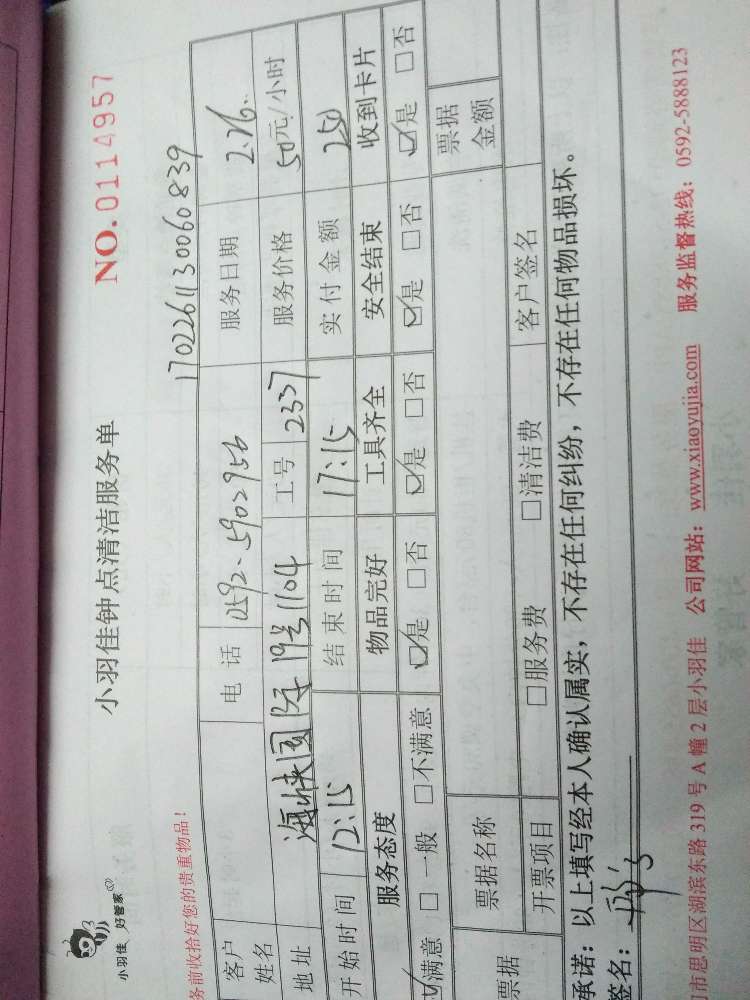 小羽佳 好管家
小羽佳钟点清洁服务单
NO.0114957
务前收拾好您的贵重物品!
1702261130060839
客户姓名 电话 0592-5902956 服务日期 2.26.
地址 海峡国际19号1104 工号 2337 服务价格 50元/小时
开始时间 12:15 结束时间 17:15 实付金额 250
服务态度 物品完好 工具齐全 安全结束 收到卡片
☑满意 □一般 □不满意 ☑是 □否 ☑是 □否 ☑是 □否 ☑是 □否
票据 票据名称 票据金额
开票项目 □服务费 □清洁费 客户签名
承诺:以上填写经本人确认属实,不存在任何纠纷,不存在任何物品损坏。
签名:
市思明区湖滨东路319号A幢2层小羽佳 公司网站:www.xiaoyujia.com 服务监督热线:0592-5888123